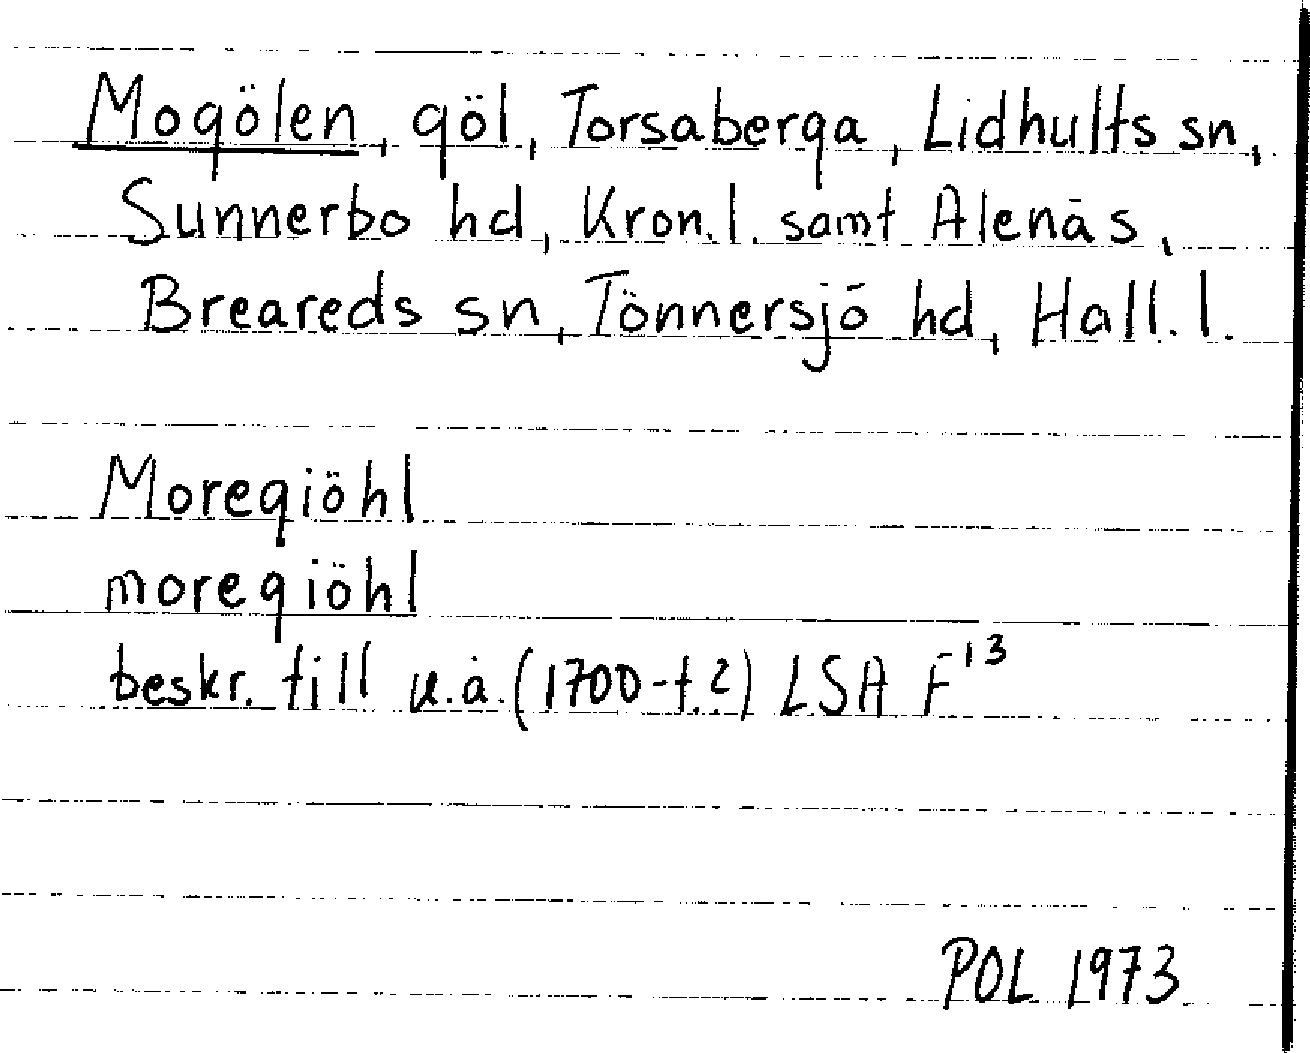 Mogölen, göl, Torsaberga, Lidhults sn,
Sunnerbo hd, Kron.l. samt Alenäs,
Breareds sn, Tönnersjö hd, Hall.l.
Moregiöhl
moregiöhl
beskr. till u.å. (1700-t.?) LSA F¹³
POL 1973